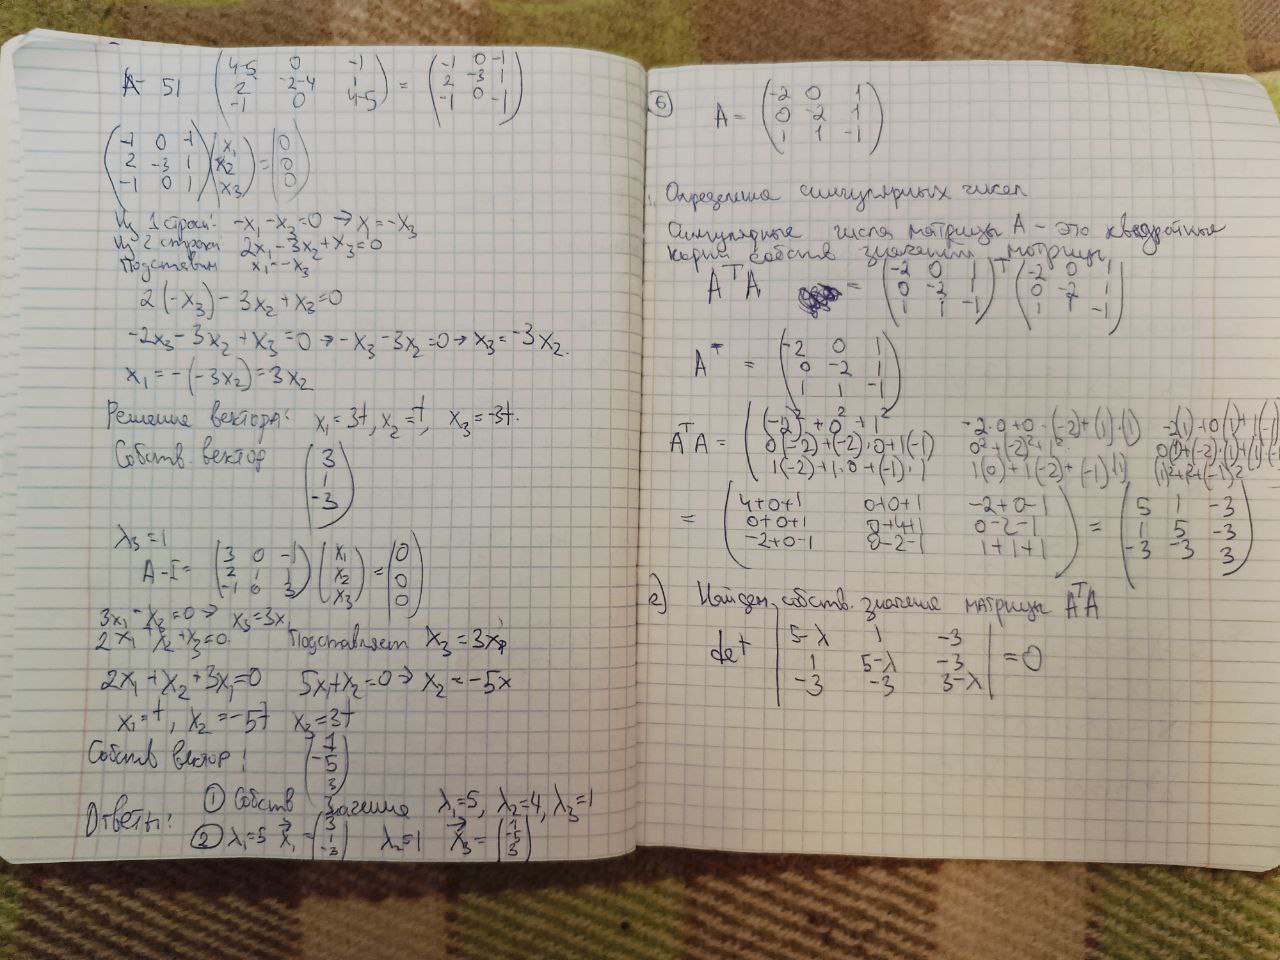 A - 5I (4-5 0 -1 / 2 -2-4 1 / -1 0 4-5) = (-1 0 -1 / 2 -3 1 / -1 0 -1)
(-1 0 -1 / 2 -3 1 / -1 0 1) (x₁ / x₂ / x₃) = (0 / 0 / 0)
Из 1 строки: -x₁ - x₃ = 0 → x₁ = -x₃
Из 2 строки 2x₁ - 3x₂ + x₃ = 0
Подставим x₁ = -x₃
2(-x₃) - 3x₂ + x₃ = 0
-2x₃ - 3x₂ + x₃ = 0 → -x₃ - 3x₂ = 0 → x₃ = -3x₂.
x₁ = -(-3x₂) = 3x₂
Решение вектора: x₁ = 3t, x₂ = t, x₃ = -3t.
Собств. вектор (3 / 1 / -3)
λ₃ = 1
A - I = (3 0 -1 / 2 1 1 / -1 0 3) (x₁ / x₂ / x₃) = (0 / 0 / 0)
3x₁ - x₃ = 0 → x₃ = 3x₁
2x₁ + x₂ + x₃ = 0. Подставляет x₃ = 3x₁
2x₁ + x₂ + 3x₁ = 0 5x₁ + x₂ = 0 → x₂ = -5x
x₁ = t, x₂ = -5t x₃ = 3t
Собств вектор: (1 / -5 / 3)
Ответы: ① Собств значения λ₁ = 5, λ₂ = 4, λ₃ = 1
② λ₁ = 5 x₁ = (3 / 1 / -3) λ₂ = 1 x₃ = (1 / -5 / 3)
⑥ A = (-2 0 1 / 0 -2 1 / 1 1 -1)
Определение сингулярных чисел
Сингулярные числа матрицы A - это квадратные
корни собств значений матрицы
AᵀA = (-2 0 1 / 0 -2 1 / 1 1 -1)ᵀ (-2 0 1 / 0 -2 1 / 1 1 -1)
Aᵀ = (-2 0 1 / 0 -2 1 / 1 1 -1)
AᵀA = ((-2)² + 0² + 1² -2·0 + 0·(-2) + (1)·(1) -2(1) + 0(1) + 1(-1)
0(-2) + (-2)·0 + 1(-1) 0² + (-2)² + 1²
1(-2) + 1·0 + (-1)·1 1(0) + 1(-2) + (-1)·(1) (1)² + 1² + (-1)²
= (4+0+1 0+0+1 -2+0-1 / 0+0+1 0+4+1 0-2-1 / -2+0-1 0-2-1 1+1+1) = (5 1 -3 / 1 5 -3 / -3 -3 3)
2) Найдем собств. значение матрицы AᵀA
det |5-λ 1 -3 / 1 5-λ -3 / -3 -3 3-λ| = 0